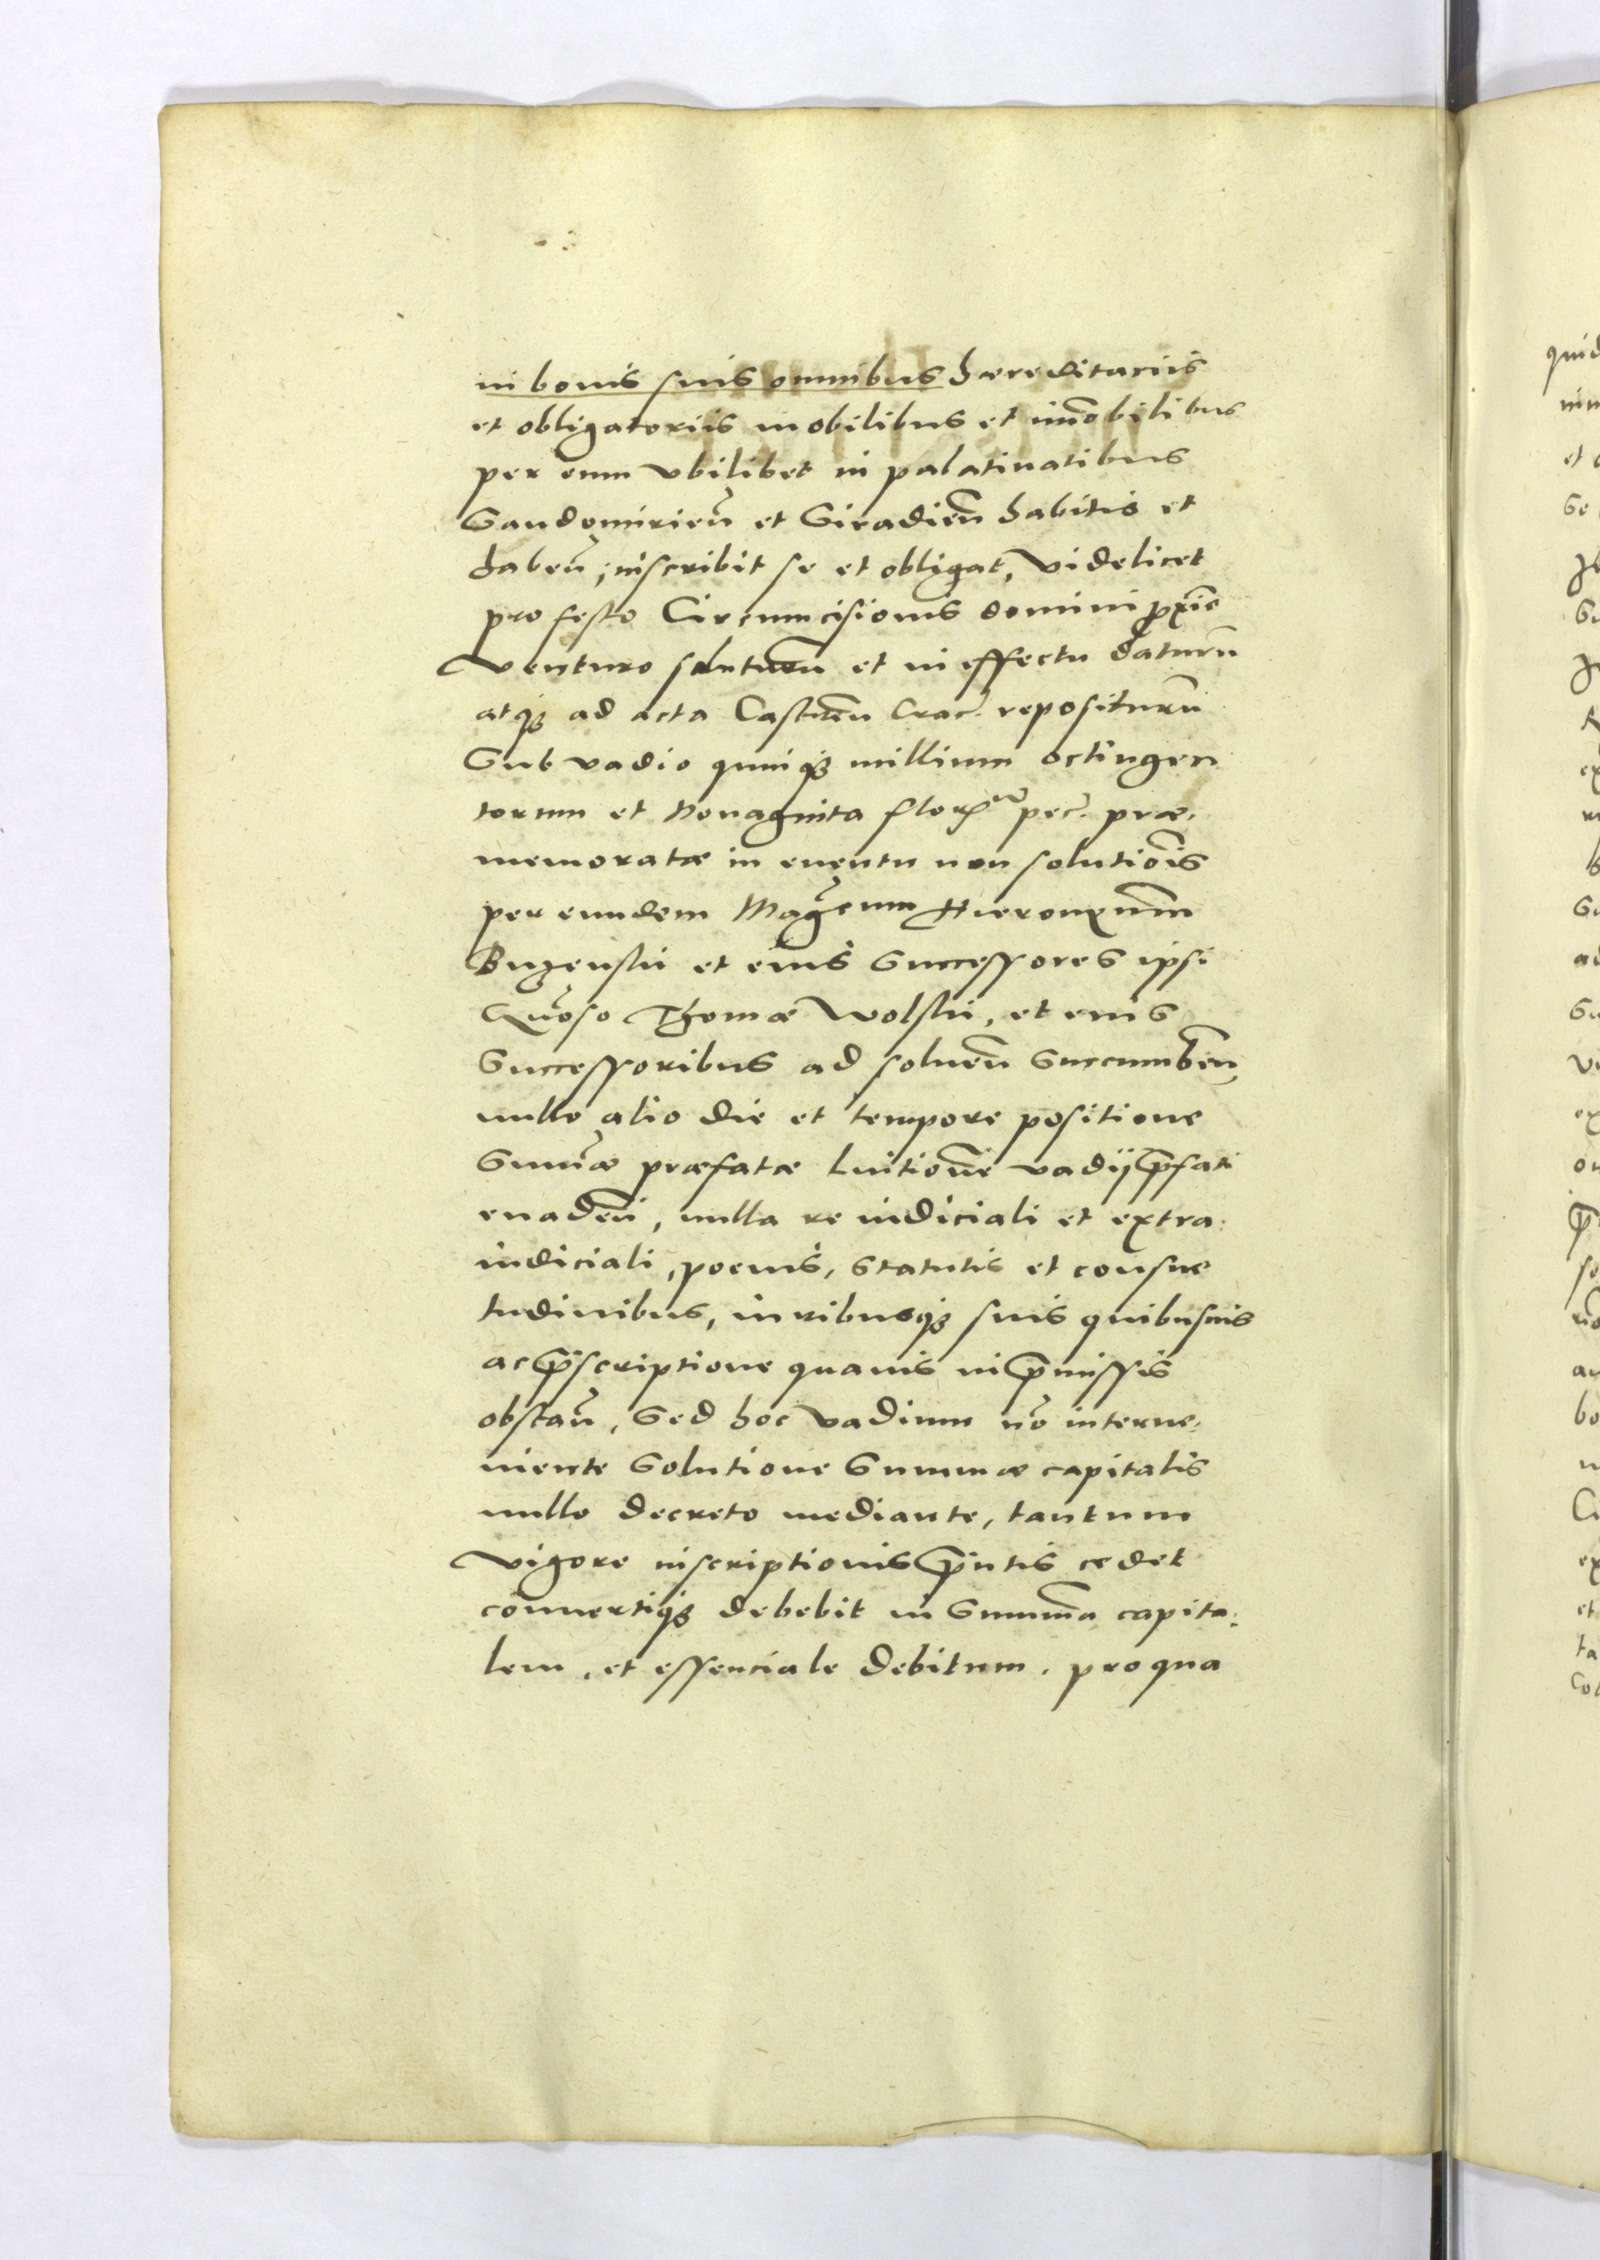 in bonis suis omnibus haereditariis
et obligatoriis mobilibus et im̃obilibus
per eum vbilibet in palatinatibus
Sandomirieñ et Siradieñ habitis et
habeñ, inscribit se et obligat, videlicet
pro festo Circumcisionis domini p̃xime
venturo soluturũ et in effectu daturũ
atqꝫ ad acta Castreñ Crac̃. repositurũ
Sub vadio quinqꝫ millium octingen
torum et Nonaginta flor pec̃. prae-
memoratae in euentu non solutiõis
per eundem Mag̃cum Hieronymũ
Buzenski et eius Successores ipsi
G̃noso Thomae Wolski, et eius
Successoribus ad soluen̄ Succumbeñ,
nullo alio die et tempore positione
Sum̃ae praefatae luitiõne vadij p̃fati
euadeñ, nulla re iudiciali et extra-
iudiciali, poenis, Statutis et consue
tudinibus, iuribusqꝫ suis quibusuis
ac p̃scriptione quauis in p̃missis
obstañ, Sed hoc vadium nõ interue-
niente Solutione Summae capitalis
nullo decreto mediante, tantum
vigore inscriptionis p̃ntis cedet
conuertiqꝫ debebit in Summã capita-
lem, et essenciale debitum. pro qua